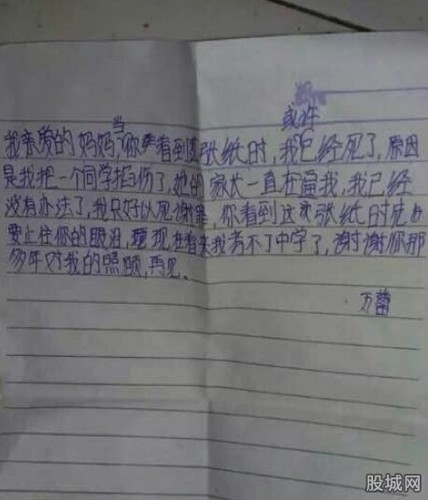 当 或许
我亲爱的妈妈,你看到这张纸时,我已经死了,原因
是我把一个同学掐伤了,她的家长一直在逼我,我已经
没有办法了,我只好以死谢罪,你看到这张纸时先必
要止住你的眼泪,现在看来我考不了中学了,谢谢你那
多年对我的照顾,再见。
万蕾
股城网